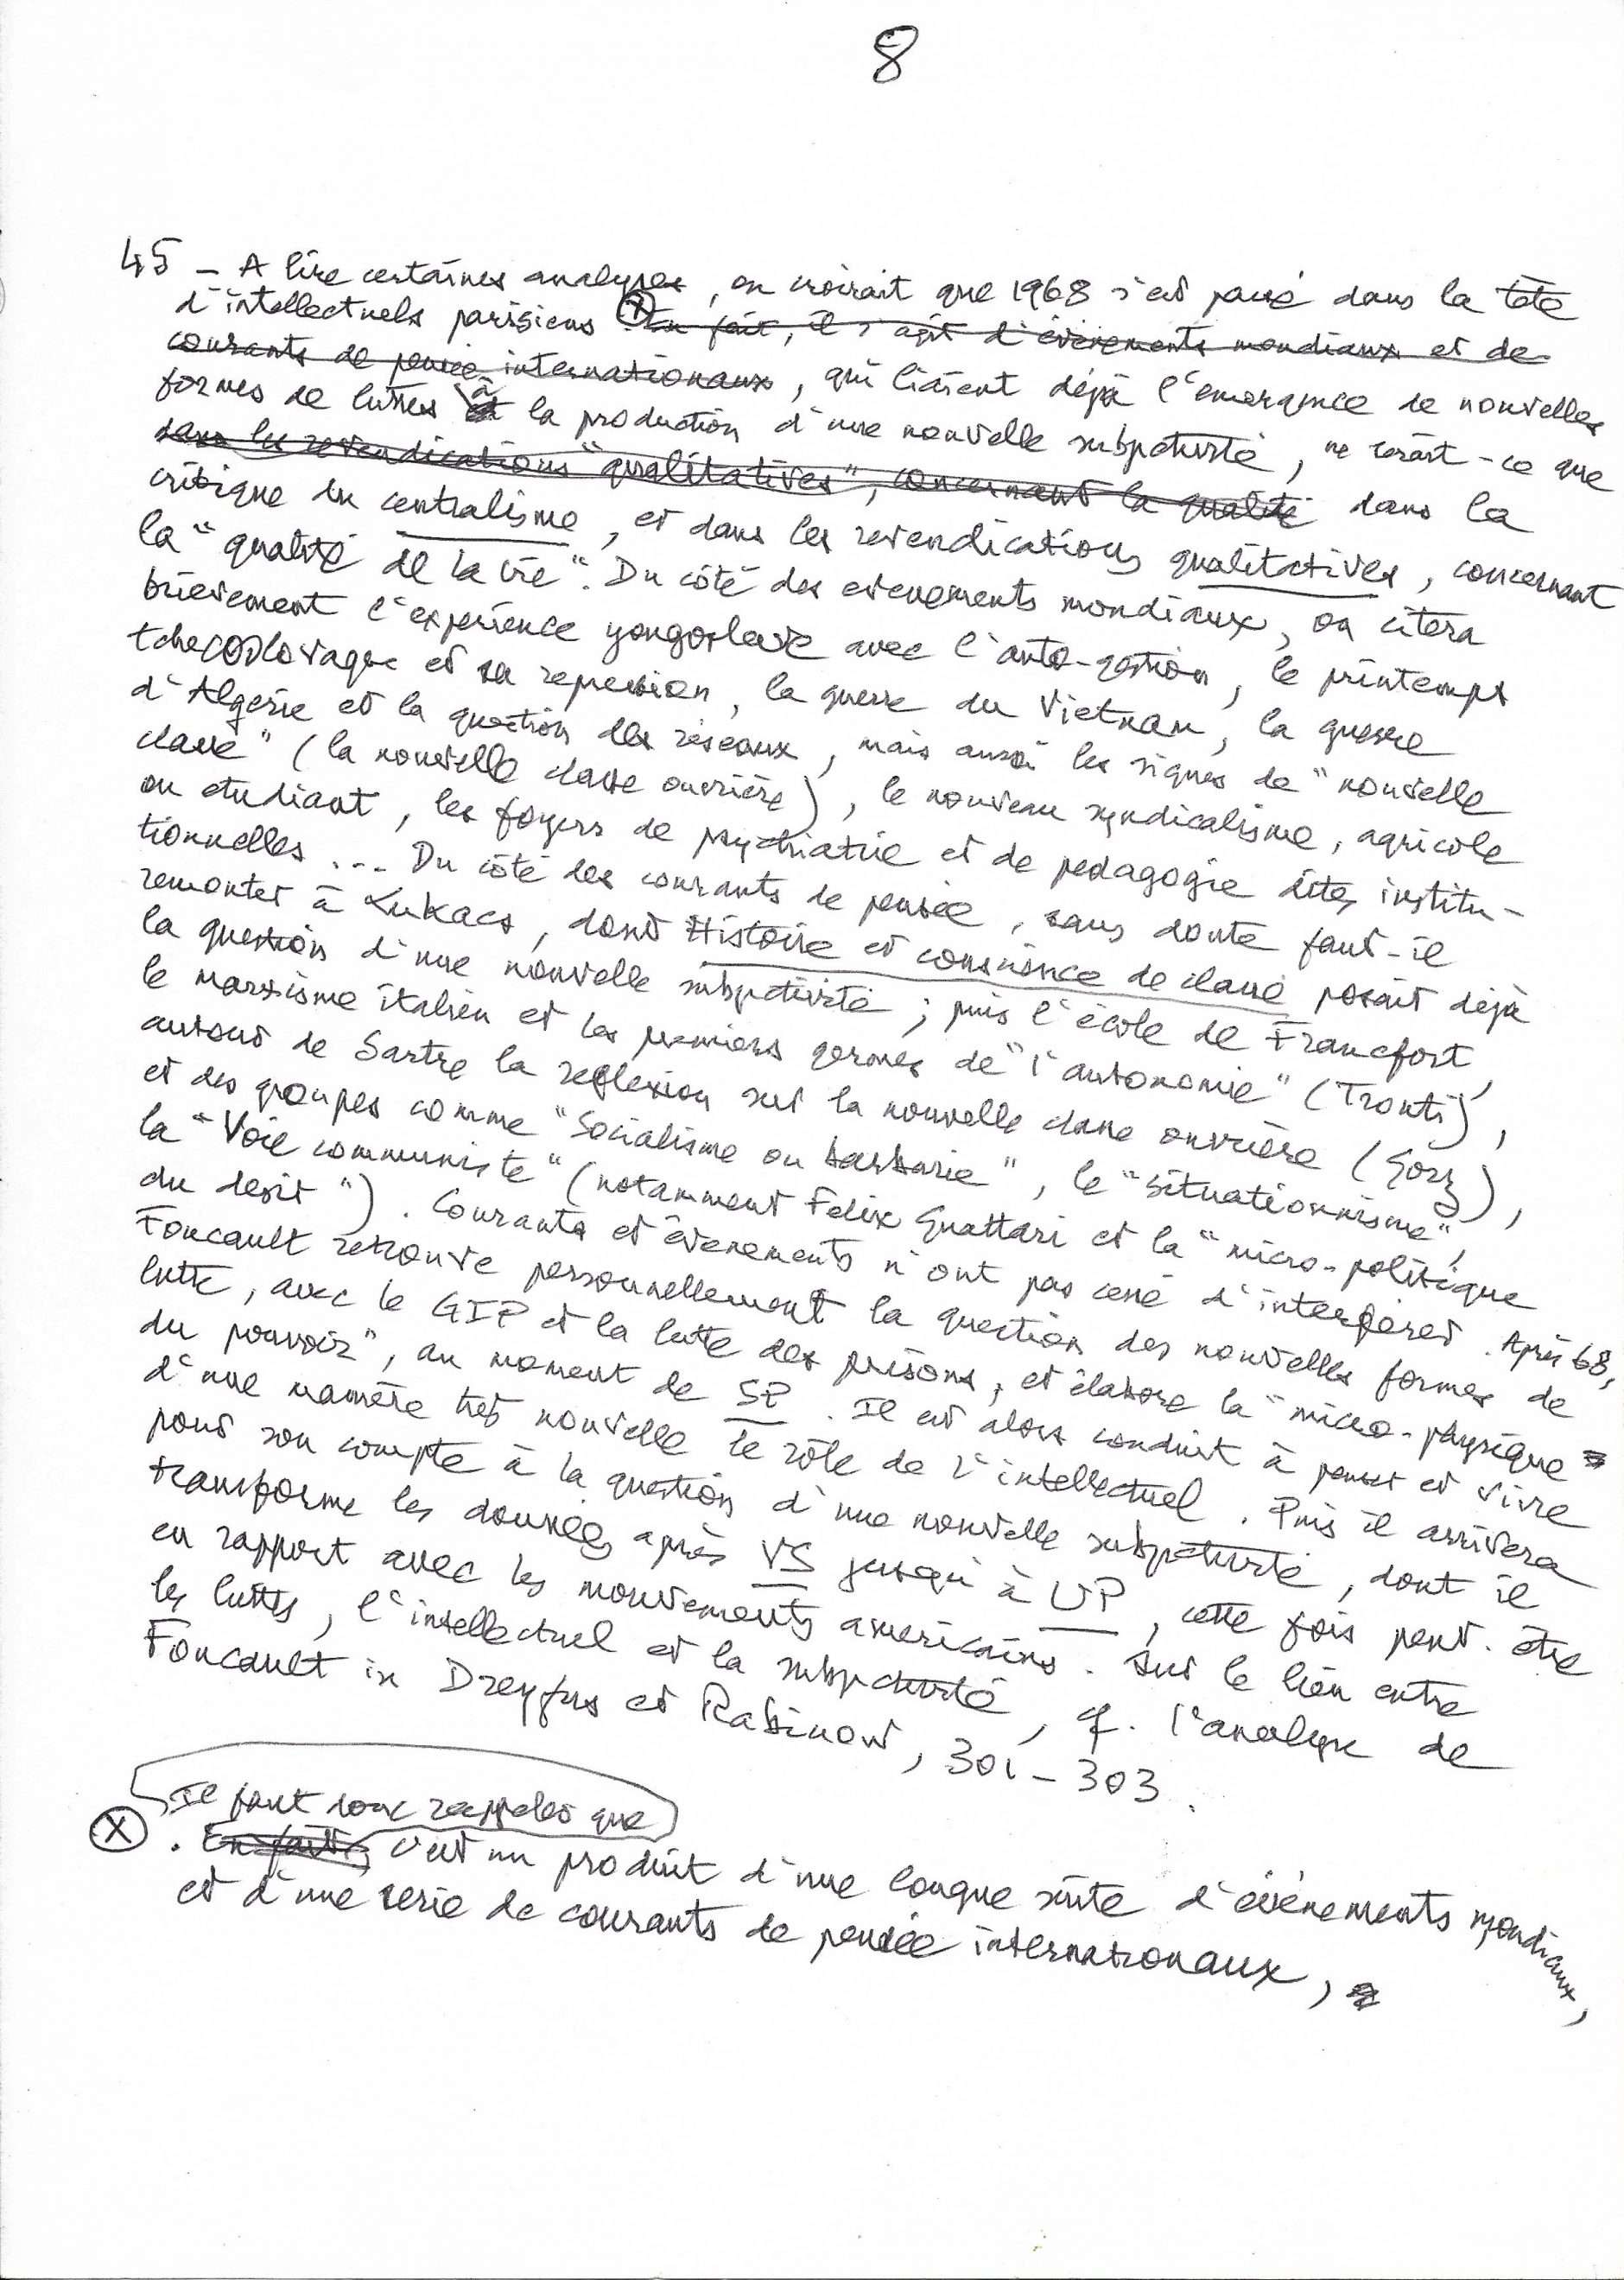 8
45 – A lire certaines analyses, on croirait que 1968 s'est passé dans la tête
d'intellectuels parisiens ⊗ . En fait, il s'agit d'évènements mondiaux et de
courants de pensée internationaux, qui liaient déjà l'émergence de nouvelles
formes de luttes à la production d'une nouvelle subjectivité, ne serait-ce que
dans les revendications "qualitatives", concernant la qualité dans la
critique du centralisme, et dans les revendications qualitatives, concernant
la "qualité de la vie". Du côté des evenements mondiaux, on citera
brièvement l'expérience yougoslave avec l'auto-gestion, le printemps
tchecoslovaque et sa repression, la guerre du Vietnam, la guerre
d'Algérie et la question des réseaux, mais aussi les signes de "nouvelle
classe" (la nouvelle classe ouvrière), le nouveau syndicalisme, agricole
ou etudiant, les foyers de psychiatrie et de pedagogie dites institu-
tionnelles ... Du côté des courants de pensée, sans doute faut-il
remonter à Lukacs, dont Histoire et conscience de classe posait déjà
la question d'une nouvelle subjectivité ; puis l'école de Francfort,
le marxisme italien et les premiers germes de "l'autonomie" (Tronti),
autour de Sartre la reflexion sur la nouvelle classe ouvrière (Gorz),
et des groupes comme "Socialisme ou barbarie", le "situationnisme",
la "Voie communiste" (notamment Felix Guattari et la "micro-politique
du desir"). Courants et évenements n'ont pas cessé d'interférer. Après 68,
Foucault retrouve personnellement la question des nouvelles formes de
lutte, avec le GIP et la lutte des prisons, et élabore la "micro-physique
du pouvoir", au moment de SP. Il est alors conduit à penser et vivre
d'une manière très nouvelle le rôle de l'intellectuel. Puis il arrivera
pour son compte à la question d'une nouvelle subjectivité, dont il
transforme les données après VS jusqu'à UP, cette fois peut-être
en rapport avec les mouvements américains. Sur le lien entre
les luttes, l'intellectuel et la subjectivité, cf. l'analyse de
Foucault in Dreyfus et Rabinow, 301-303.
Il faut donc rappeler que
⊗ . En fait, c'est un produit d'une longue suite d'évènements mondiaux,
et d'une serie de courants de pensée internationaux,